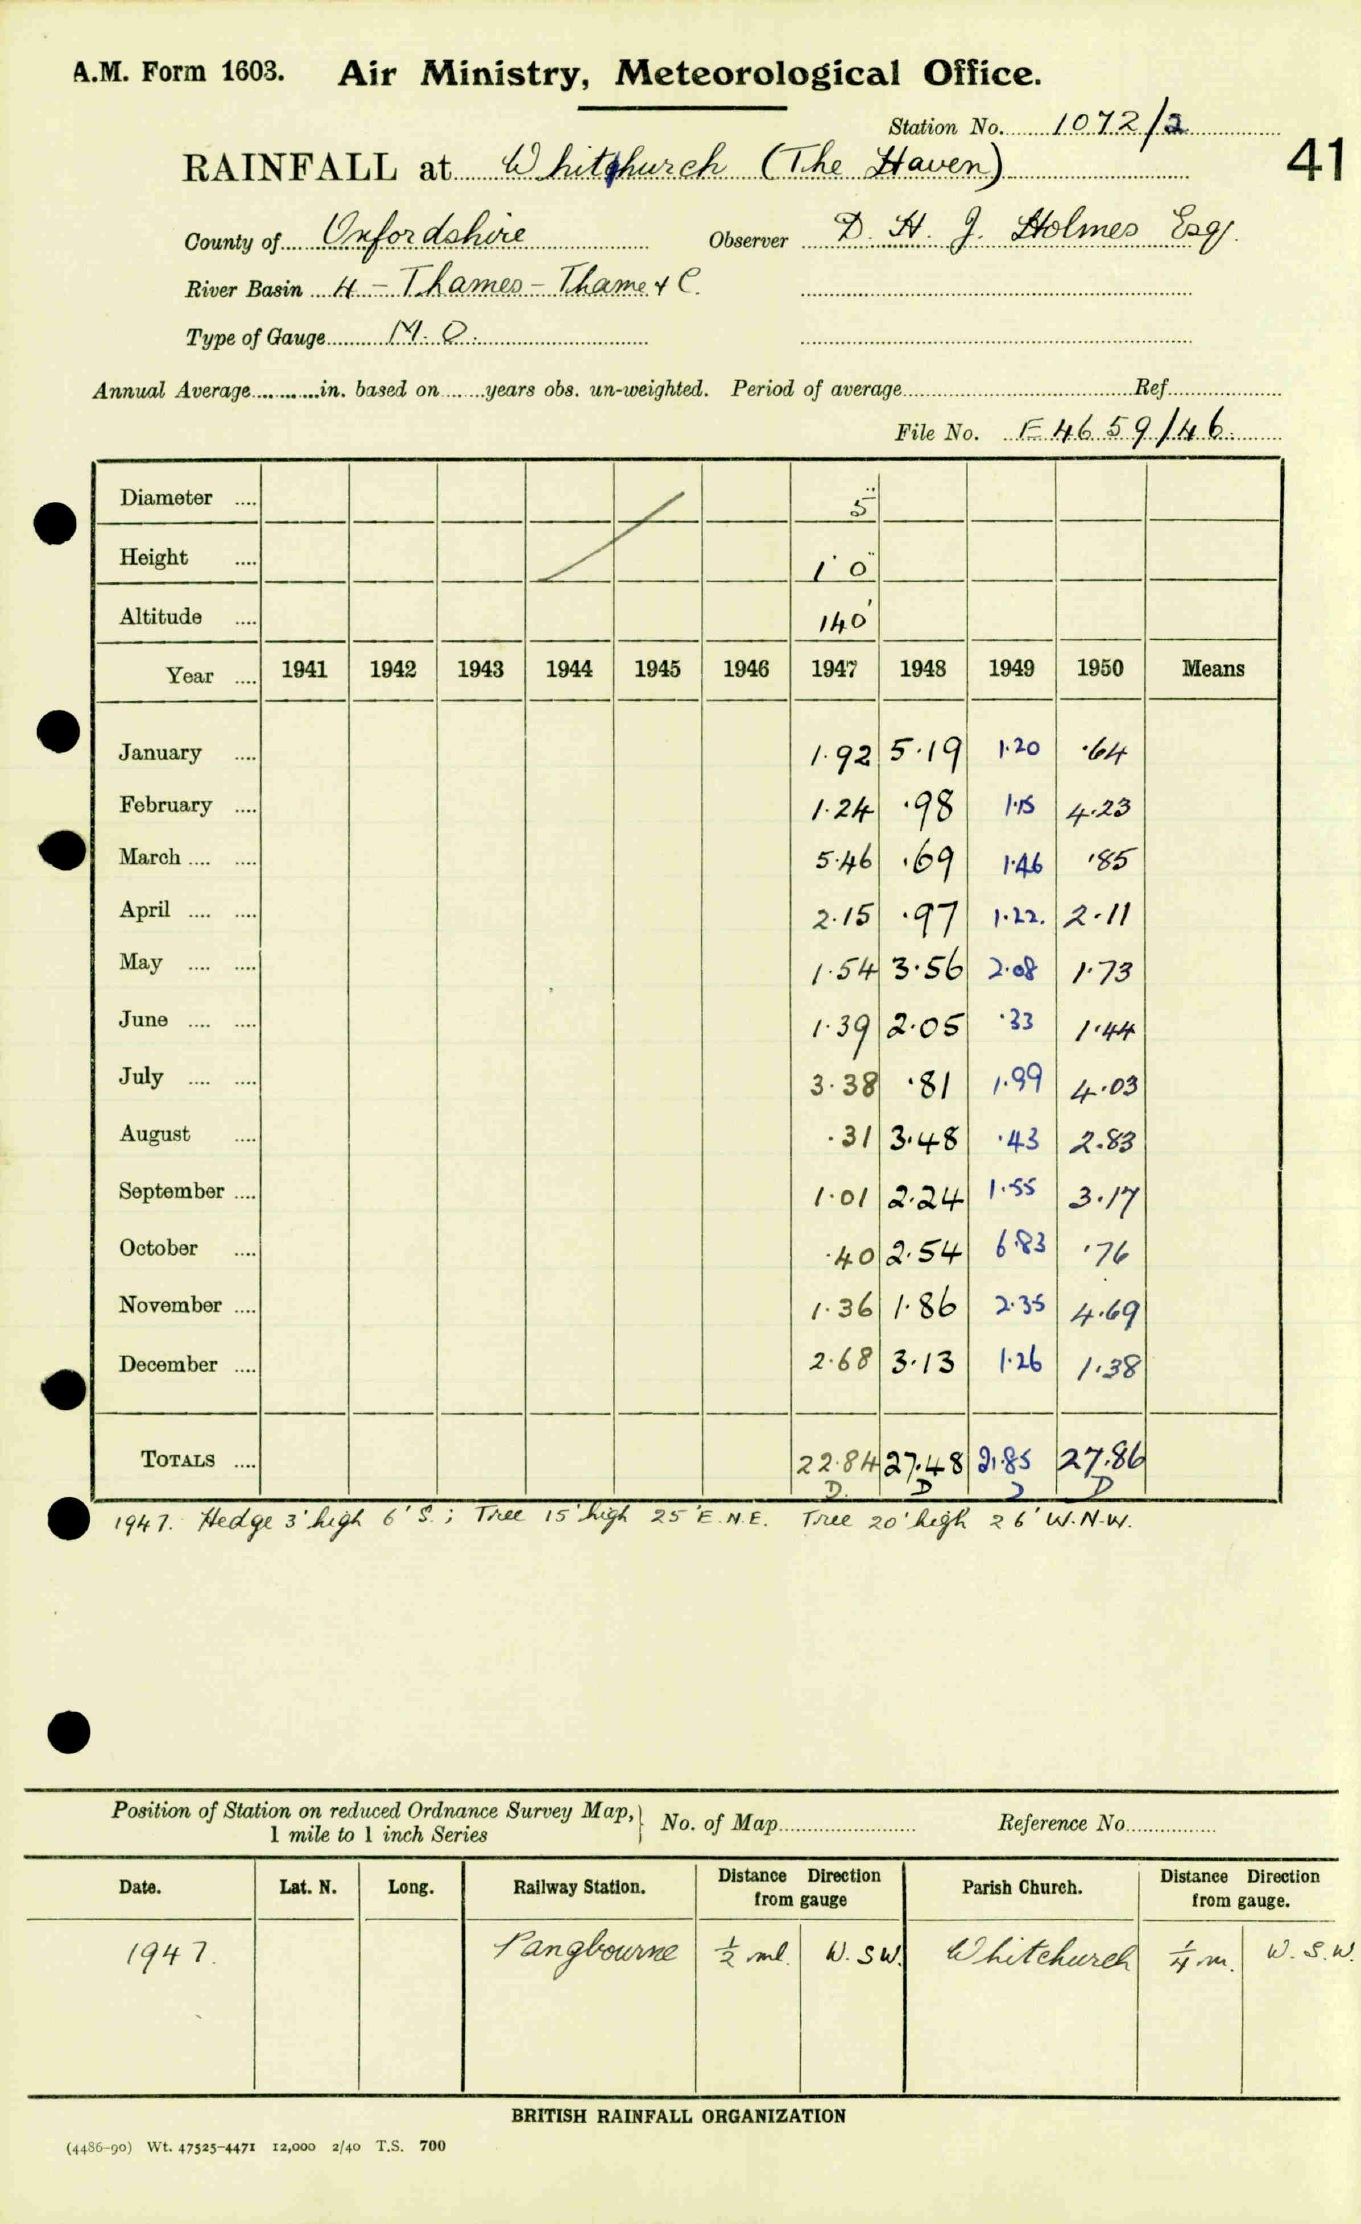 A.M. Form 1603. Air Ministry, Meteorological Office.
Station No. 1072/2
41
RAINFALL at Whitchurch (The Haven)
County of Oxfordshire Observer D. H. J. Holmes Esq.
River Basin 4 – Thames – Thame & C.
Type of Gauge M.O.
Annual Average in. based on years obs. un-weighted. Period of average Ref.
File No. F 4659/46.
Diameter 5"
Height 1' 0"
Altitude 140'
Year 1941 1942 1943 1944 1945 1946 1947 1948 1949 1950 Means
January 1.92 5.19 1.20 .64
February 1.24 .98 1.15 4.23
March 5.46 .69 1.46 .85
April 2.15 .97 1.22. 2.11
May 1.54 3.56 2.08 1.73
June 1.39 2.05 .33 1.44
July 3.38 .81 1.99 4.03
August .31 3.48 .43 2.83
September 1.01 2.24 1.55 3.17
October .40 2.54 6.83 .76
November 1.36 1.86 2.35 4.69
December 2.68 3.13 1.26 1.38
TOTALS 22.84 27.48 21.85 27.86
D. D D D
1947. Hedge 3' high 6' S.; Tree 15' high 25' E.N.E. Tree 20' high 26' W.N.W.
Position of Station on reduced Ordnance Survey Map, No. of Map Reference No.
1 mile to 1 inch Series
Date. Lat. N. Long. Railway Station. Distance Direction from gauge Parish Church. Distance Direction from gauge.
1947. Pangbourne ½ ml. W.SW. Whitchurch ¼ m. W.S.W.
BRITISH RAINFALL ORGANIZATION
(4486-90) Wt. 47525-4471 12,000 2/40 T.S. 700